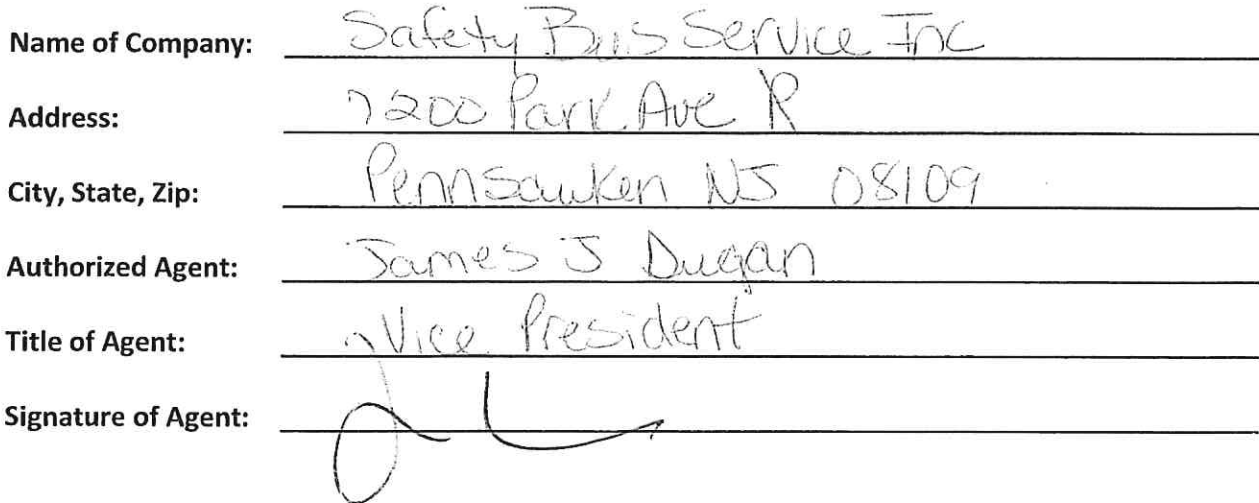 Name of Company: Safety Bus Service Inc
Address: 7200 Park Ave R
City, State, Zip: Pennsauken NJ 08109
Authorized Agent: James J Dugan
Title of Agent: Vice President
Signature of Agent: